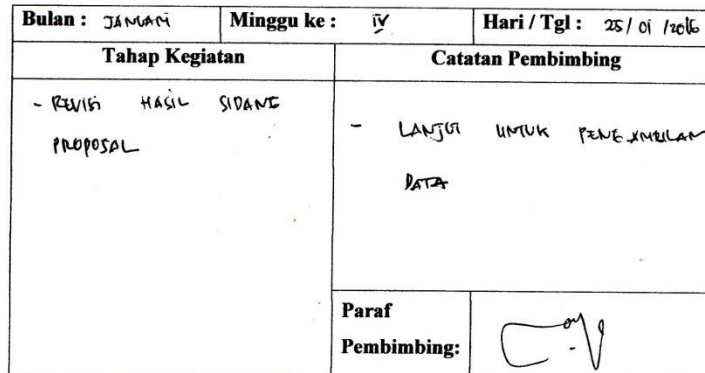 Bulan : JANUARI Minggu ke : IV Hari / Tgl : 25/ 01 /2016
Tahap Kegiatan Catatan Pembimbing
- REVISI HASIL SIDANG
PROPOSAL
- LANJUT UNTUK PENGAMBILAN
DATA
Paraf
Pembimbing: